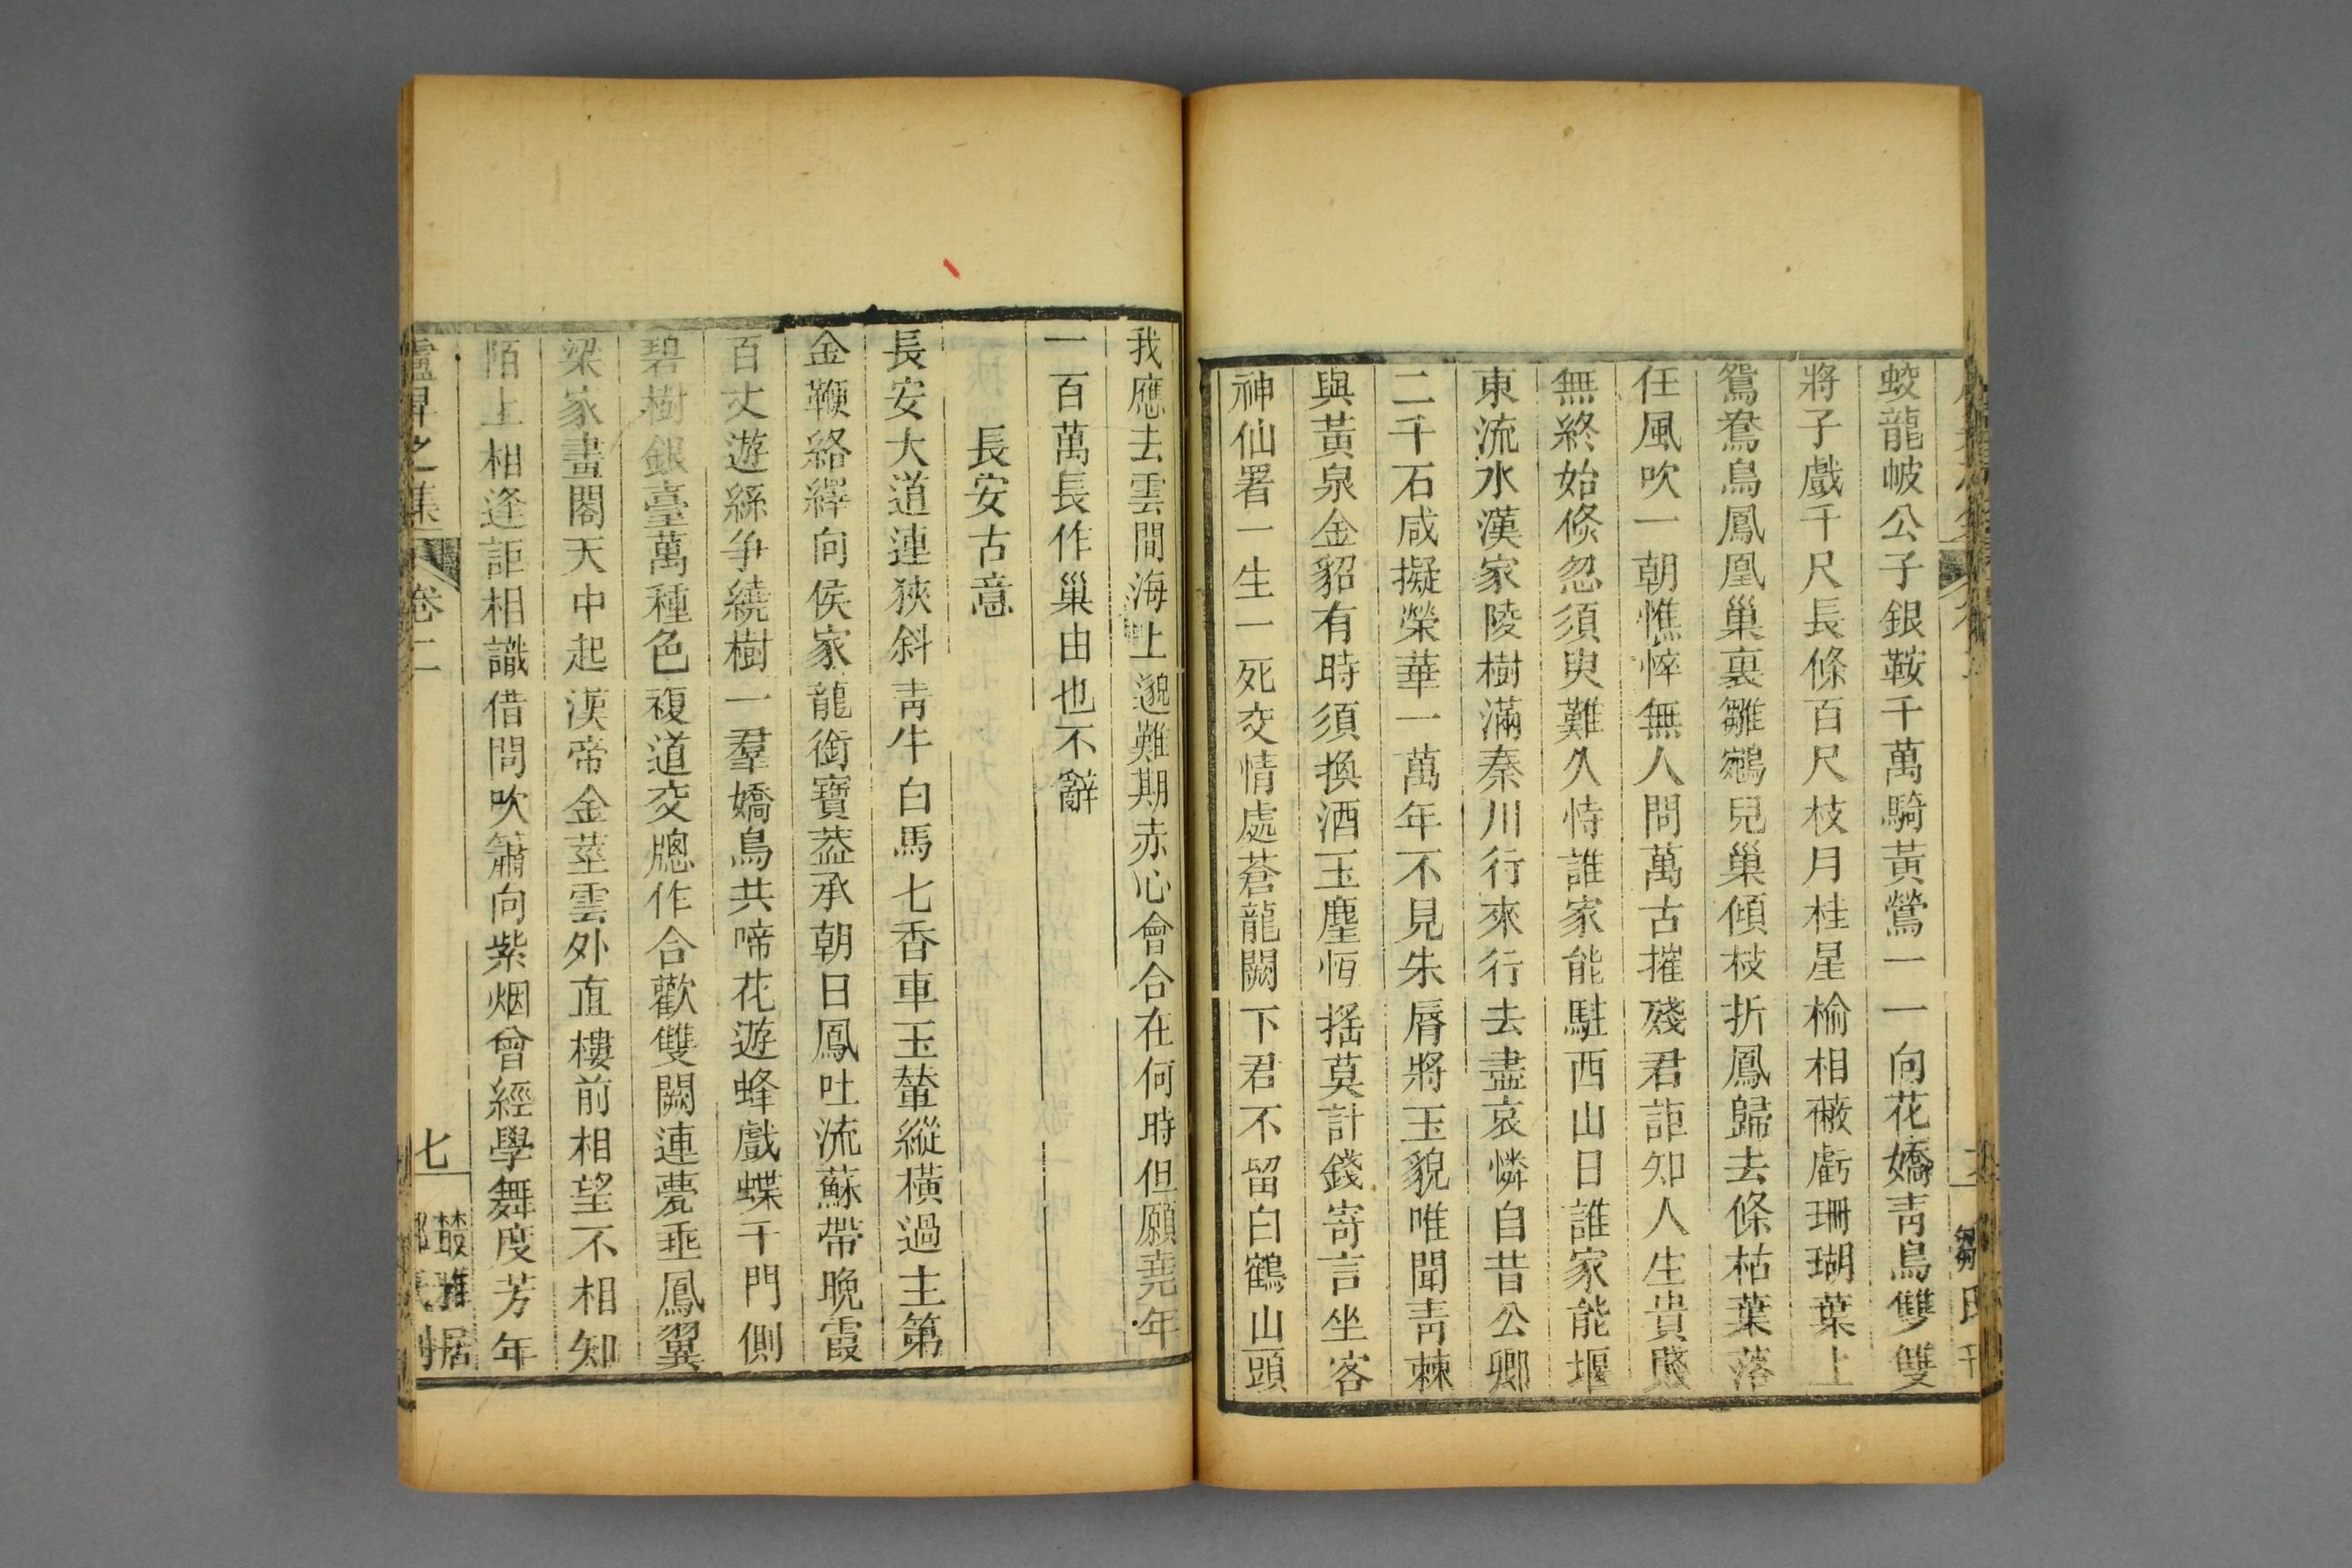 蛟龍岥公子銀鞍千萬騎黃鶯一一向花嬌靑鳥雙雙
將子戲千尺長條百尺枝月桂星榆相蔽虧珊瑚葉上
鴛鴦鳥鳳凰巢裏雛鵷兒巢傾枝折鳳歸去條枯葉落
任風吹一朝憔悴無人問萬古摧殘君詎知人生貴賤
無終始倏忽須臾難久恃誰家能駐西山日誰家能堰
東流水漢家陵樹滿秦川行來行去盡哀憐自昔公卿
二千石咸擬榮華一萬年不見朱脣將玉貌唯聞靑棘
與黃泉金貂有時須換酒玉塵恆搖莫計錢寄言坐客
神仙署一生一死交情處蒼龍闕下君不留白鶴山頭
我應去雲間海上邈難期赤心會合在何時但願堯年
一百萬長作巢由也不辭
長安古意
長安大道連狹斜靑牛白馬七香車玉輦縱橫過主第
金鞭絡繹向侯家龍銜寶葢承朝日鳳吐流蘇帶晚霞
百丈遊絲爭繞樹一羣嬌鳥共啼花遊蜂戲蝶千門側
碧樹銀臺萬種色複道交牕作合歡雙闕連甍垂鳳翼
梁家畫閣天中起漢帝金莖雲外直樓前相望不相知
陌上相逢詎相識借問吹簫向紫烟曾經學舞度芳年
卷二
七